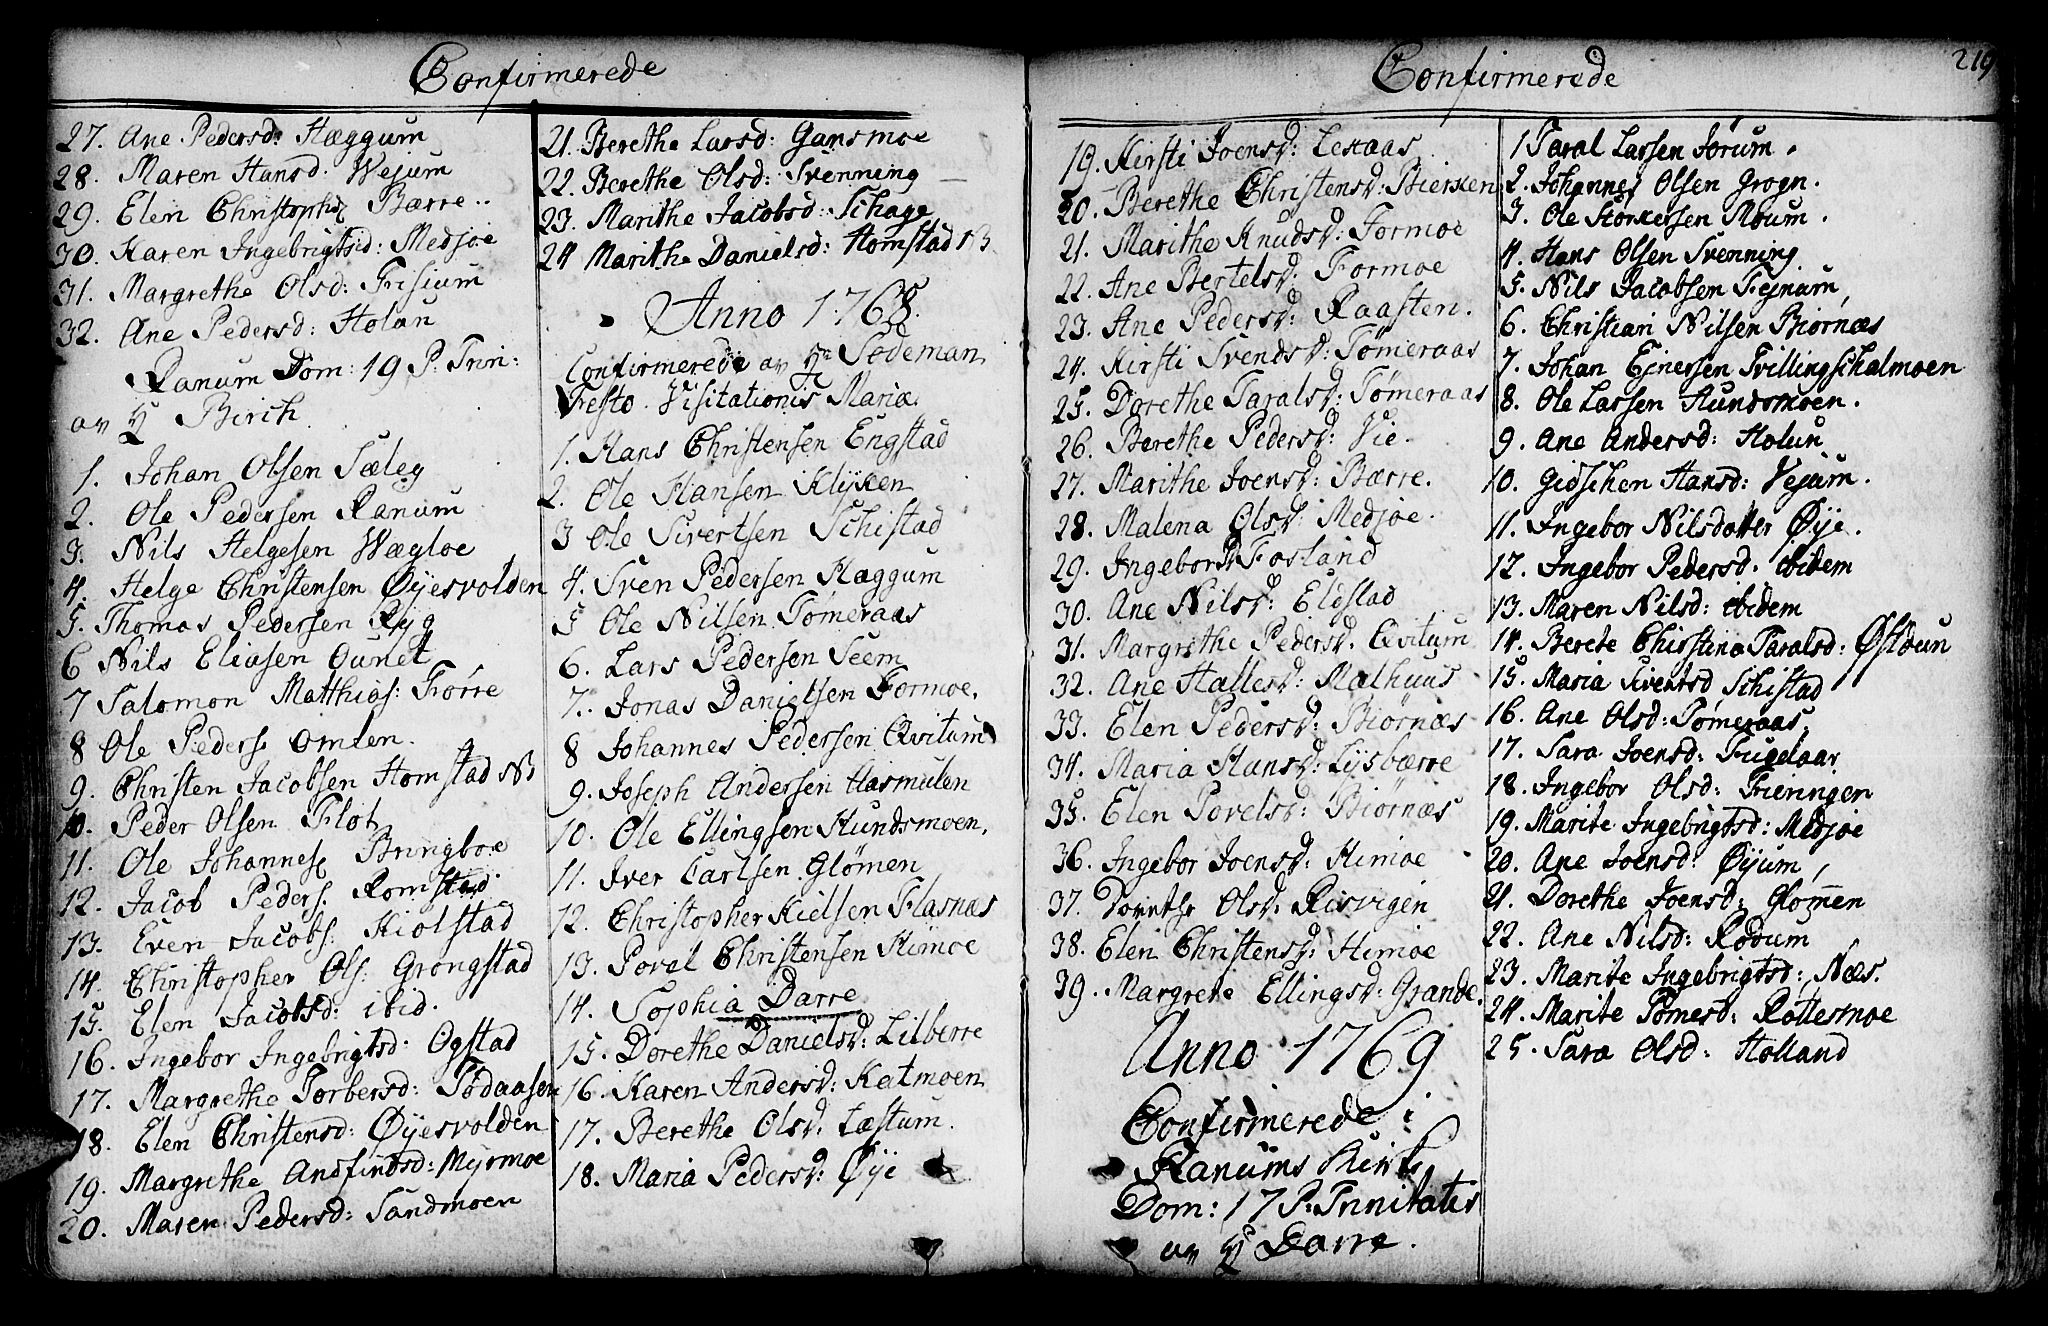 Confirmerede
27. Ane Pedersd: Hæggum
28. Maren Hansd. Wejum
29. Elen Christophd Bærre..
30. Karen Ingebrigtsd: Medjoe
31. Margrethe Olsd: Grisium
32. Ane Pedersd: Holan
Ranum Dom: 19 P. Trin:
av Birch
1. Johan Olsen Sæleg
2. Ole Pedersen Ranum
3. Nils Helgesen Wægloe
4. Helge Christensen Øyesvolden
5. Thomas Pedersen Ryg
6 Nils Eliasen Ounet
7 Salomon Matthias: Tørre
8 Ole Peders Omlen.
9. Christen Jacobsen Homstad NB
10. Peder Olsen Flot
11. Ole Johannes Bringboe
12. Jacob Peders. Romstad
13. Even Jacobs: Kiolstad
14. Christopher Ols: Grongstad
15. Elen Jacobsd: ibid.
16. Ingebor Ingebrigtsd. Ogstad
17. Margrethe Torbersd: Tødaasen
18. Elen Christensd: Øyesvolden
19. Margrethe Andfindsd: Myrmoe
20. Maren Pedersd: Sandmoen
21. Berethe Larsd: Gansmoe
22. Berethe Olsd: Svenning
23. Marithe Jacobsd: Schage
24 Marithe Danielsd: Homstad NB
Anno 1768.
Confirmerede av Hr Sodeman
Festo. Visitationis Mariæ.
1. Hans Christensen Engstad
2. Ole Hansen Klyken
3 Ole Sivertsen Schistad
4. Sven Pedersen Hæggum
5 Ole Nilsen Tømeraas
6. Lars Pedersen Seem
7. Jonas Danielsen Formoe.
8 Johannes Pedersen Qvitum
9. Joseph Andersen Hasmulen
10. Ole Ellingsen Hundsmoen.
11. Iver Carlsen Glømen
12. Christopher Kielsen Flasnæs
13. Povel Christensen Himoe
14. Sophia Darre
15. Dorethe Danielsd: Lilberre
16. Karen Andersd: Katmoen
17. Berethe Olsd: Læstum.
18. Maria Pedersd: Øye
Confirmerede
219
19. Kirsti Joensd: Lexaas
20. Berethe Christensd: Biersken
21. Marithe Knudsd: Formoe
22. Ane Bertelsd: Formoe
23. Ane Pedersd: Raasten.
24. Kirsti Svendsd: Tømeraas
25. Dorethe Taralsd: Tømeraas
26. Berethe Pedersd: Vie.
27. Marithe Joensd: Bærre.
28. Malena Olsd: Medjoe.
29. Ingebor Fosland
30. Ane Nilsd: Eldstad
31. Margrethe Pedersd: Qvitum
32. Ane Hallesd: Mælhuus
33. Elen Pedersd: Biørnæs
34. Maria Hansd: Lysbærre
35. Elen Povelsd: Biørnæs
36. Ingebor Joensd: Himoe
37. Dorethe Olsd: Risvigen
38. Elen Christensd: Himoe
39. Margrete Ellingsd: Grande.
Anno 1769
Confirmerede i
Ranums Kirk
Dom: 17 P. Trinitatis
av Darre.
1 Taral Larsen Jørum.
2. Johannes Olsen Grogn.
3. Ole Storkersen Moum.
4. Hans Olsen Svenning
5. Nils Jacobsen Fejnum
6. Christian Nilsen Biornæs
7. Johan Ejnersen Trillingschalmoen
8. Ole Larsen Hundsmoen.
9. Ane Andersd: Holun
10. Gidschen Hansd: Vejum.
11. Ingebor Nilsdotter Øye.
12. Ingebor Pedersd. ibidem
13. Maren Nilsd: ibidem
14. Berete Christina Taralsd: Østdun
15. Maria Sivertsd Schistad
16. Ane Olsd: Tømeraas
17. Sara Joensd: Fugelaar
18. Ingebor Olsd: Trieningen
19. Marite Ingebrigtsd: Medjoe
20. Ane Joensd: Øyum
21. Dorethe Joensd: Glomen
22. Ane Nilsd: Rodum
23. Marite Ingebrigtsd: Næs.
24. Marite Tomesd: Rottesmoe
25. Sara Olsd: Holland